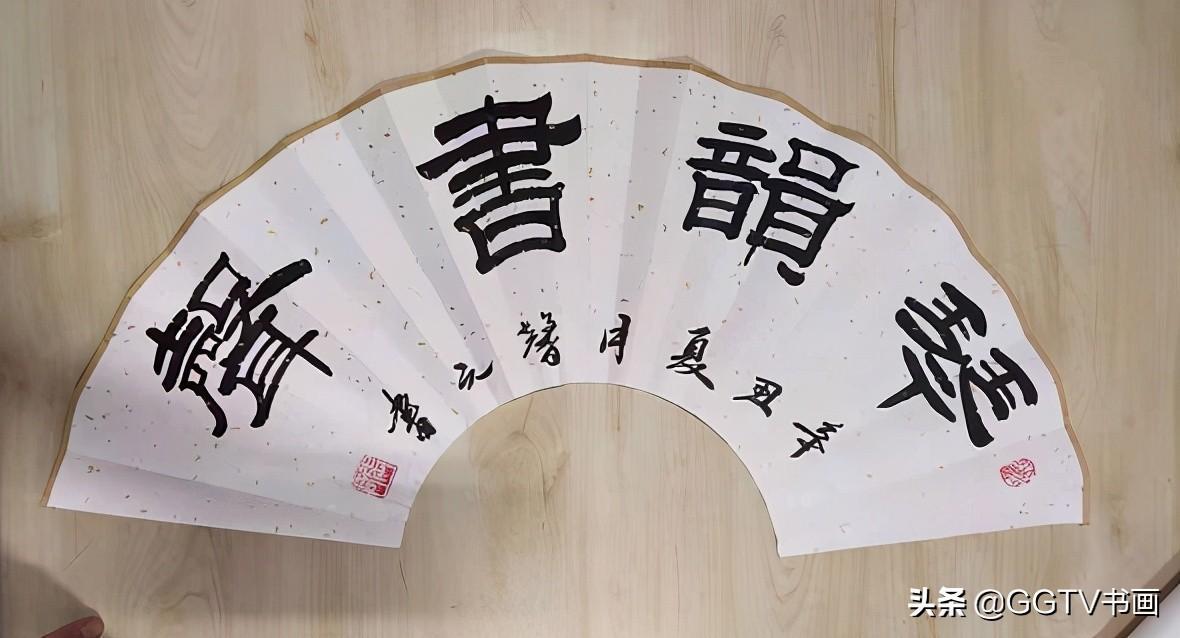 琴韻書聲
辛丑夏月
头条 @GGTV书画